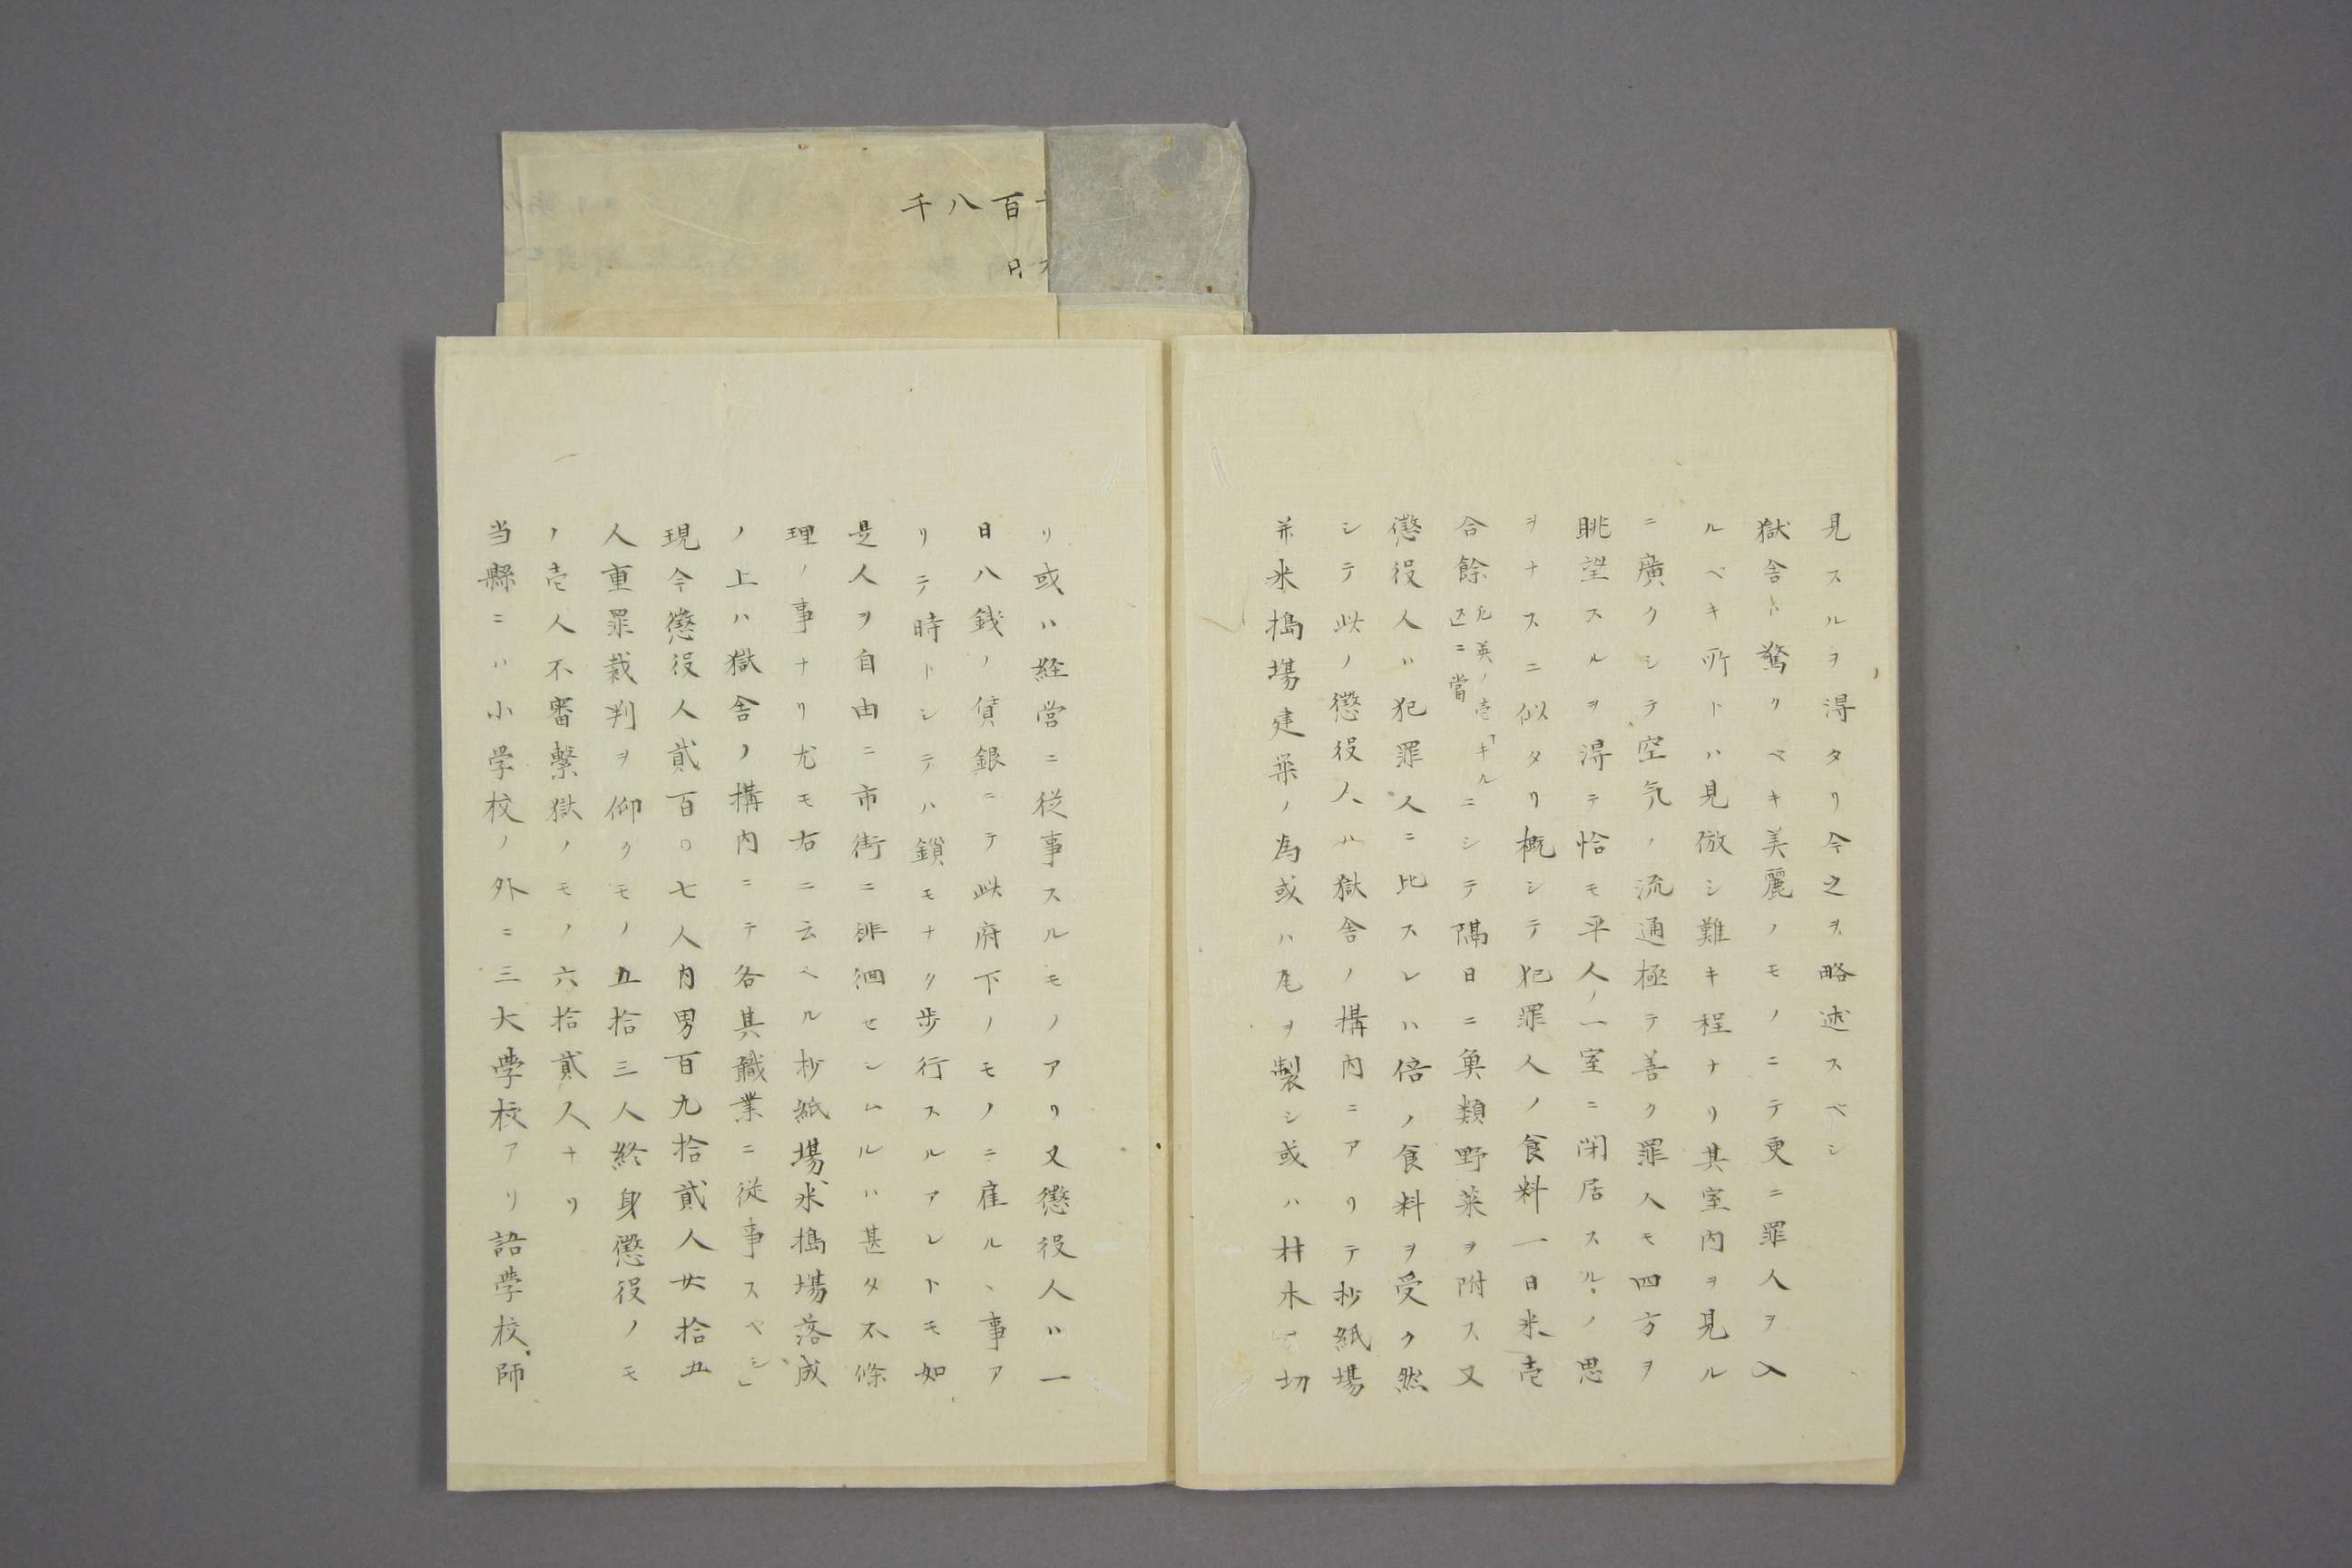 見スルヲ得タリ今之ヲ略述スベシ
獄舎ト驚クベキ美麗ノモノニテ更ニ罪人ヲ入
ルベキ所トハ見倣シ難キ程ナリ其室内ヲ見ル
ニ廣クシテ空気ノ流通極テ善ク罪人モ四方ヲ
眺望スルヲ得テ恰モ平人ノ一室ニ閉居スルノ思
ヲナスニ似タリ概シテ犯罪人ノ食料一日米壱
合餘凡英ノ壱「キルニ
シテ隔日ニ魚類野菜ヲ附ス又
懲役人ハ犯罪人ニ比スレハ倍ノ食料ヲ受ク然
シテ此ノ懲役人ハ獄舎ノ構内ニアリテ抄紙場
并米搗場建築ノ為或ハ瓦ヲ製シ或ハ材木ヲ切
リ或ハ経営ニ従事スルモノアリ又懲役人ハ一
日八銭ノ賃銀ニテ此府下ノモノニ雇ルヽ事ア
リテ時トシテハ鎖モナク歩行スルアレトモ如
是人ヲ自由ニ市街ニ徘徊セシムルハ甚タ不條
理ノ事ナリ尤モ右ニ云ヘル抄紙場、米搗場落成
ノ上ハ獄舎ノ構内ニテ各其職業ニ従事スベシ」
現今懲役人貳百〇七人内男百九拾貳人女拾五
人重罪裁判ヲ仰クモノ五拾三人終身懲役ノモ
ノ壱人不審繋獄ノモノ六拾貳人ナリ
当縣ニハ小学校ノ外ニ三大學校アリ語學校、師
千八百